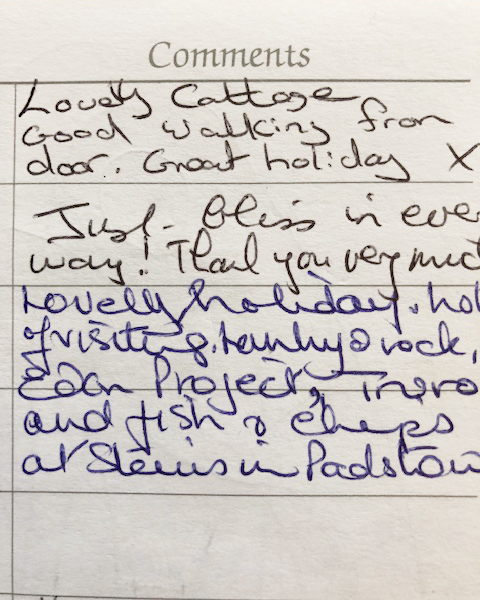 Comments
Lovely Cottage
Good walking from
door. Great holiday X
Just. Bliss in eve
way! Thank you very muc
Lovely holiday. hol
of visiting. rock,
Eden Project,
and fish & Chips
at Steins in Padstow